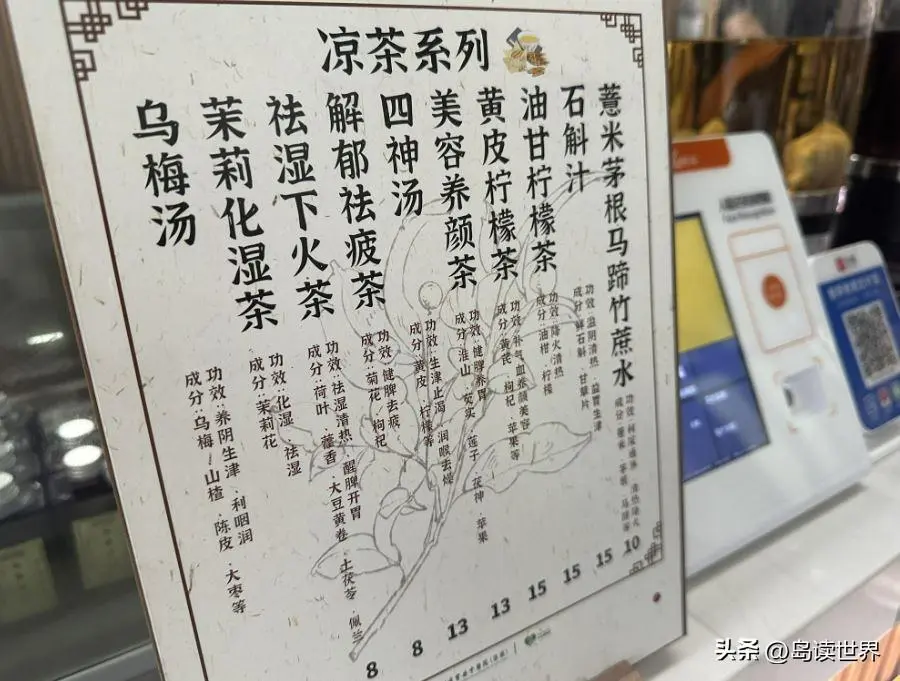 凉茶系列
薏米茅根马蹄竹蔗水
功效:利尿通淋 清热降火
成分:薏米 茅根 马蹄等
石斛汁
功效:滋阴清热.益胃生津
成分:鲜石斛.甘草片
油甘柠檬茶
功效:降火清热
成分:油柑.柠檬
黄皮柠檬茶
功效:补气血.养颜美容
成分:黄芪.枸杞.苹果等
美容养颜茶
功效:健脾养胃
成分:淮山.芡实.莲子.茯神.苹果
四神汤
功效:生津止渴.润喉去燥
成分:黄皮.柠檬等
解郁祛疲茶
功效:健脾去疲
成分:菊花.枸杞
祛湿下火茶
功效:祛湿清热.醒脾开胃
成分:荷叶.藿香.大豆黄卷.土茯苓.佩兰
茉莉化湿茶
功效:化湿.祛湿
成分:茉莉花
乌梅汤
功效:养阴生津.利咽润
成分:乌梅/山楂.陈皮.大枣等
8 8 13 13 15 15 15 10
头条 @岛读世界